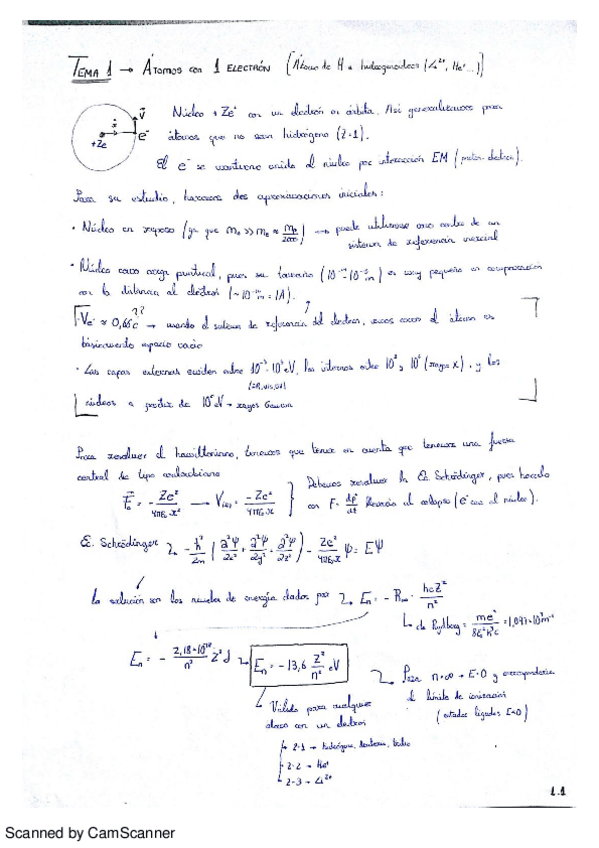 TEMA 1 → ÁTOMOS CON 1 ELECTRÓN (Átomo de H e hidrogenoides (Li²⁺, He⁺...))
Núcleo +Ze con un electrón en órbita. Así generalizamos para
átomos que no sean hidrógeno (Z=1).
+Ze
e⁻
El e⁻ se mantiene unido al núcleo por interacción EM (protón-electrón).
Para su estudio, hacemos dos aproximaciones iniciales:
· Núcleo en reposo (ya que → puede utilizarse como centro de un
sistema de referencia inercial
· Núcleo como carga puntual, pues su tamaño es muy pequeño en comparación
con la distancia al electrón (~10⁻¹⁰m = 1Å).
→ usando el sistema de referencia del electrón, vemos como el átomo es
básicamente espacio vacío
· Las capas externas emiten entre las internas entre (rayos X), y los
(IR, VIS, UV)
núcleos a partir de → rayos Gamma
Para resolver el hamiltoniano, tenemos que tener en cuenta que tenemos una fuerza
central de tipo coulombiano
Debemos resolver la Ec. Schrödinger, pues hacerlo
con F = dp/dt llevaría al colapso (e⁻ cae al núcleo).
F = - Ze²/4πε₀x² → V = -Ze²/4πε₀x
Ec. Schrödinger → -ħ²/2m (∂²Ψ/∂x² + ∂²Ψ/∂y² + ∂²Ψ/∂z²) - Ze²/4πε₀x Ψ = EΨ
La solución son los niveles de energía dados por → Eₙ = - R∞ · hcZ²/n²
↳ cte Rydberg = me⁴/8ε₀²h³c = 1,097·10⁷m⁻¹
Eₙ = - 2,18·10⁻¹⁸/n² Z² J → Eₙ = -13,6 Z²/n² eV
Para n=∞ → E=0 y correspondería
al límite de ionización
(estados ligados E<0)
↳ Válido para cualquier
átomo con un electrón
Z=1 → hidrógeno, deuterio, tritio
Z=2 → He⁺
Z=3 → Li²⁺
1.1
Scanned by CamScanner